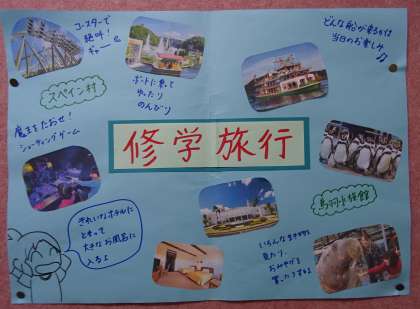 コースターで
絶叫!
ギャーー
ボートに乗って
ゆったり
のんびり
どんな船が来るかは
当日のお楽しみ♪
スペイン村
魔王をたおせ!
シューティングゲーム
修学旅行
鳥羽水族館
きれいなホテルに
とまって
大きなお風呂に
入るよ
いろんな生き物を
見たり、
おみやげを
買ったりするよ